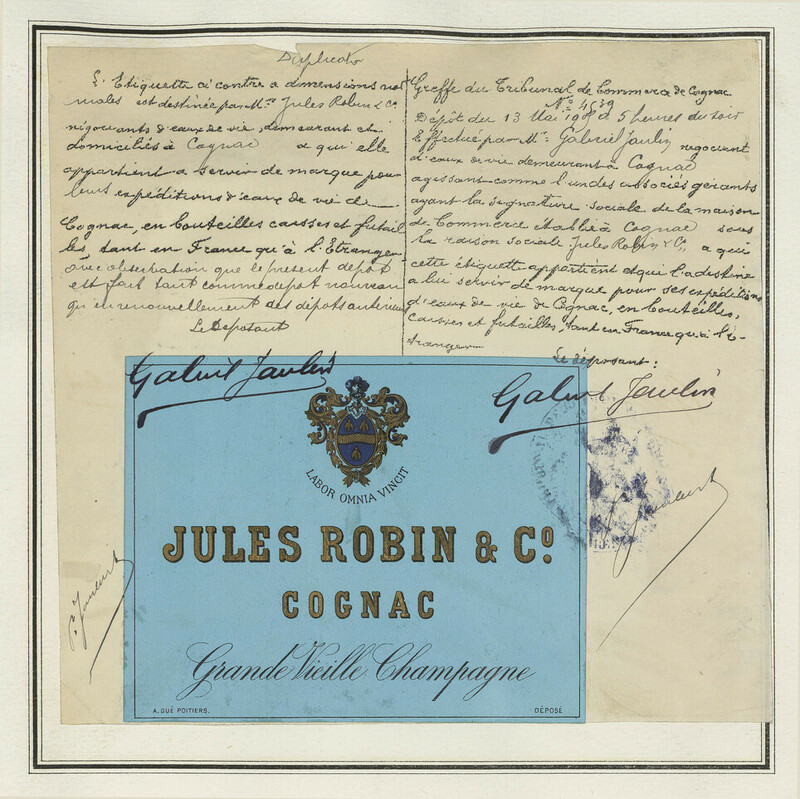 Duplicata
L'Etiquette ci contre a dimensions nor
males est destinée par Mrs Jules Robin & Co
négociants d'eaux de vie, demeurant et
domiciliés à Cognac a qui elle
appartient a servir de marque pour
leurs expéditions d'eaux de vie de
Cognac, en bouteilles caisses et futail
les, tant en France qu'à l'Etranger
avec observation que le présent dépôt
est fait tant comme dépot nouveau
qu'en renouvellement des dépôts antérieurs
Le Déposant
Greffe du Tribunal de Commerce de Cognac
No 4539
Dépôt du 13 Mai 190 à 5 heures du soir
Effectué par Mr Gabriel Jaulin négociant
d'eaux de vie demeurant à Cognac
agissant comme l'un des associés gérants
ayant la signature sociale de la maison
de Commerce établie à Cognac sous
la raison sociale Jules Robin & Co, a qui
cette étiquette appartient et qui l'a destine
a lui servir de marque pour ses expéditions
d'eaux de vie de Cognac, en bouteilles,
caisses et futailles, tant en France qu'à l'é-
tranger
Le déposant :
Gabriel Jaulin
Gabriel Jaulin
LABOR OMNIA VINCIT
JULES ROBIN & Co.
COGNAC
Grande Vieille Champagne
A. GUÉ POITIERS.
DÉPOSÉ